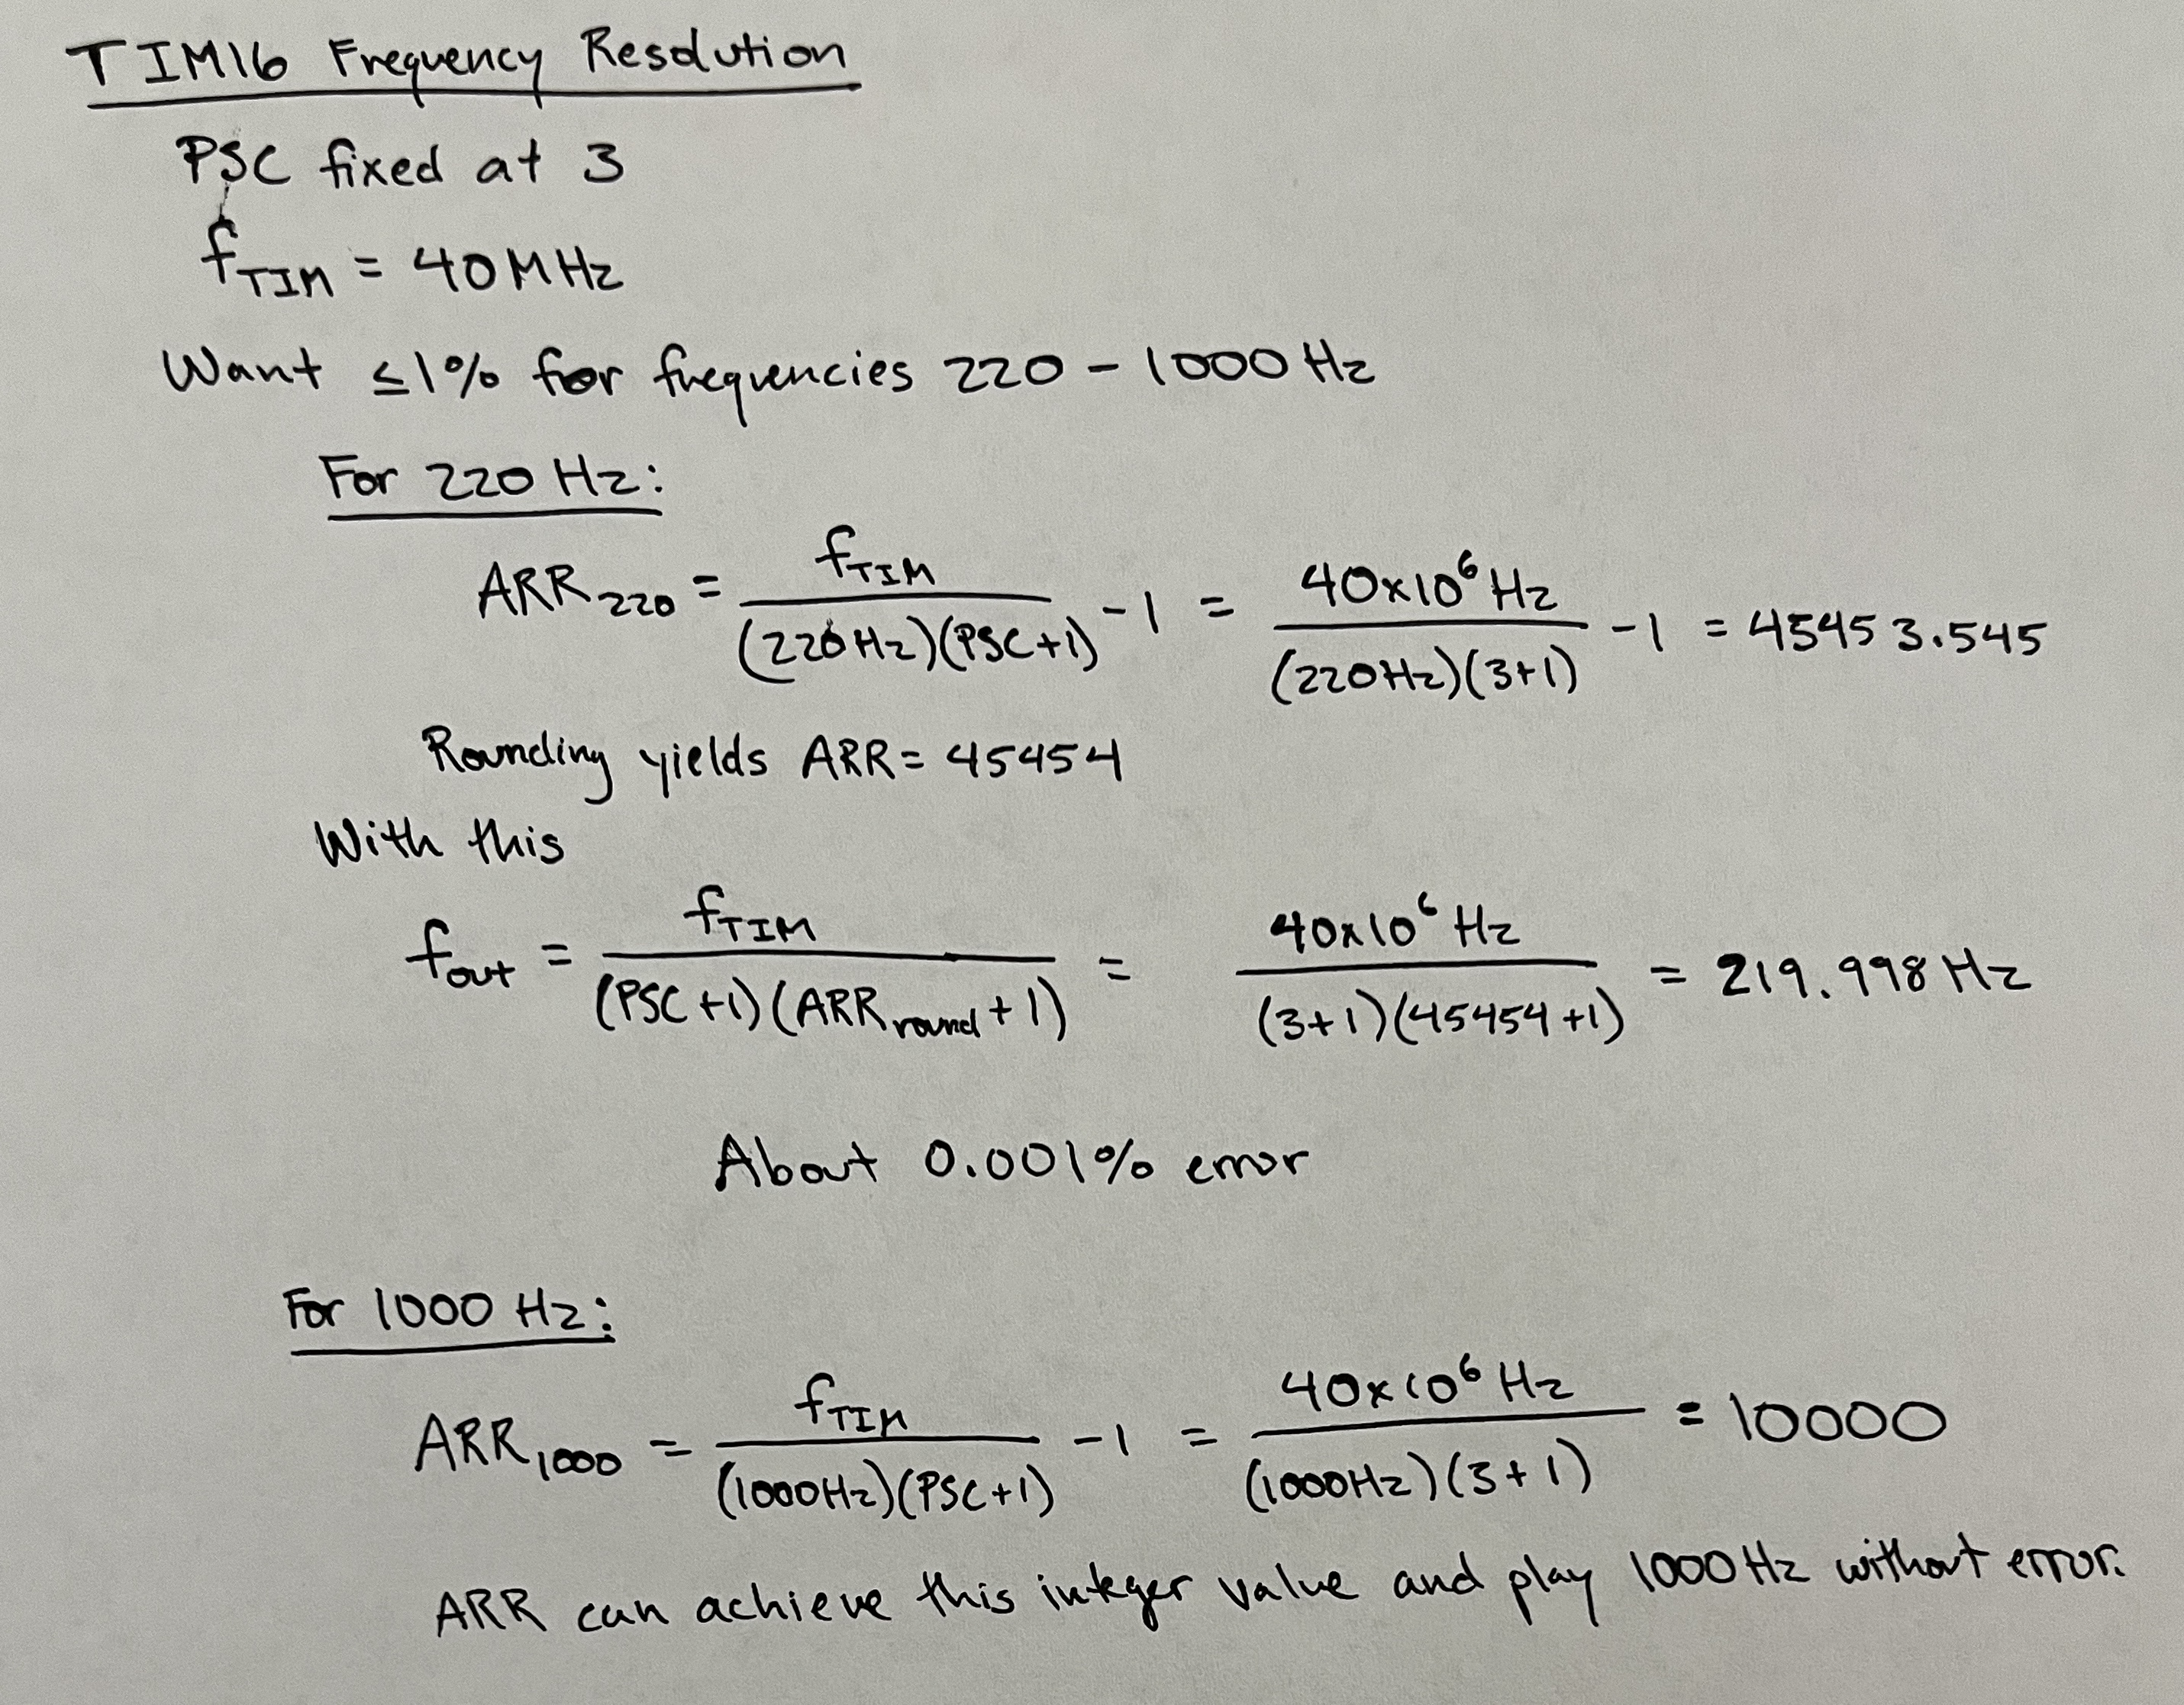 TIM16 Frequency Resolution
PSC fixed at 3
f_TIM = 40MHz
Want ≤1% for frequencies 220 - 1000 Hz
For 220 Hz:
ARR_220 = f_TIM / (220Hz)(PSC+1) - 1 = 40x10^6 Hz / (220Hz)(3+1) - 1 = 45453.545
Rounding yields ARR = 45454
With this
f_out = f_TIM / (PSC+1)(ARR_round + 1) = 40x10^6 Hz / (3+1)(45454+1) = 219.998 Hz
About 0.001% error
For 1000 Hz:
ARR_1000 = f_TIM / (1000Hz)(PSC+1) - 1 = 40x10^6 Hz / (1000Hz)(3+1) = 10000
ARR can achieve this integer value and play 1000Hz without error.